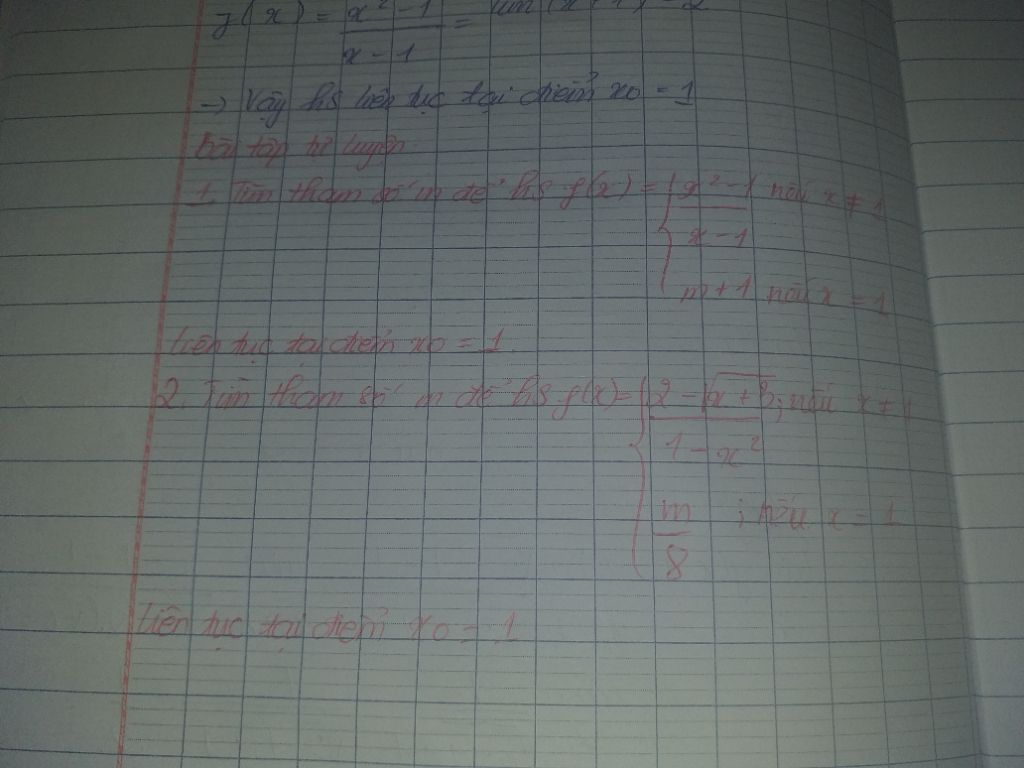 f(x) = x² - 1 / x - 1 = lim (x + 1) = 2
→ Vậy hs liên tục tại điểm x0 = 1
Bài tập tự luyện
1. Tìm tham số m để hs f(x) = { x² - 1 / x - 1 nếu x ≠ 1
m + 1 nếu x = 1
liên tục tại điểm x0 = 1
2. Tìm tham số m để hs f(x) = { 2 - √x + 3 / 1 - x² ; nếu x ≠ 1
m / 8 ; nếu x = 1
Liên tục tại điểm x0 = 1